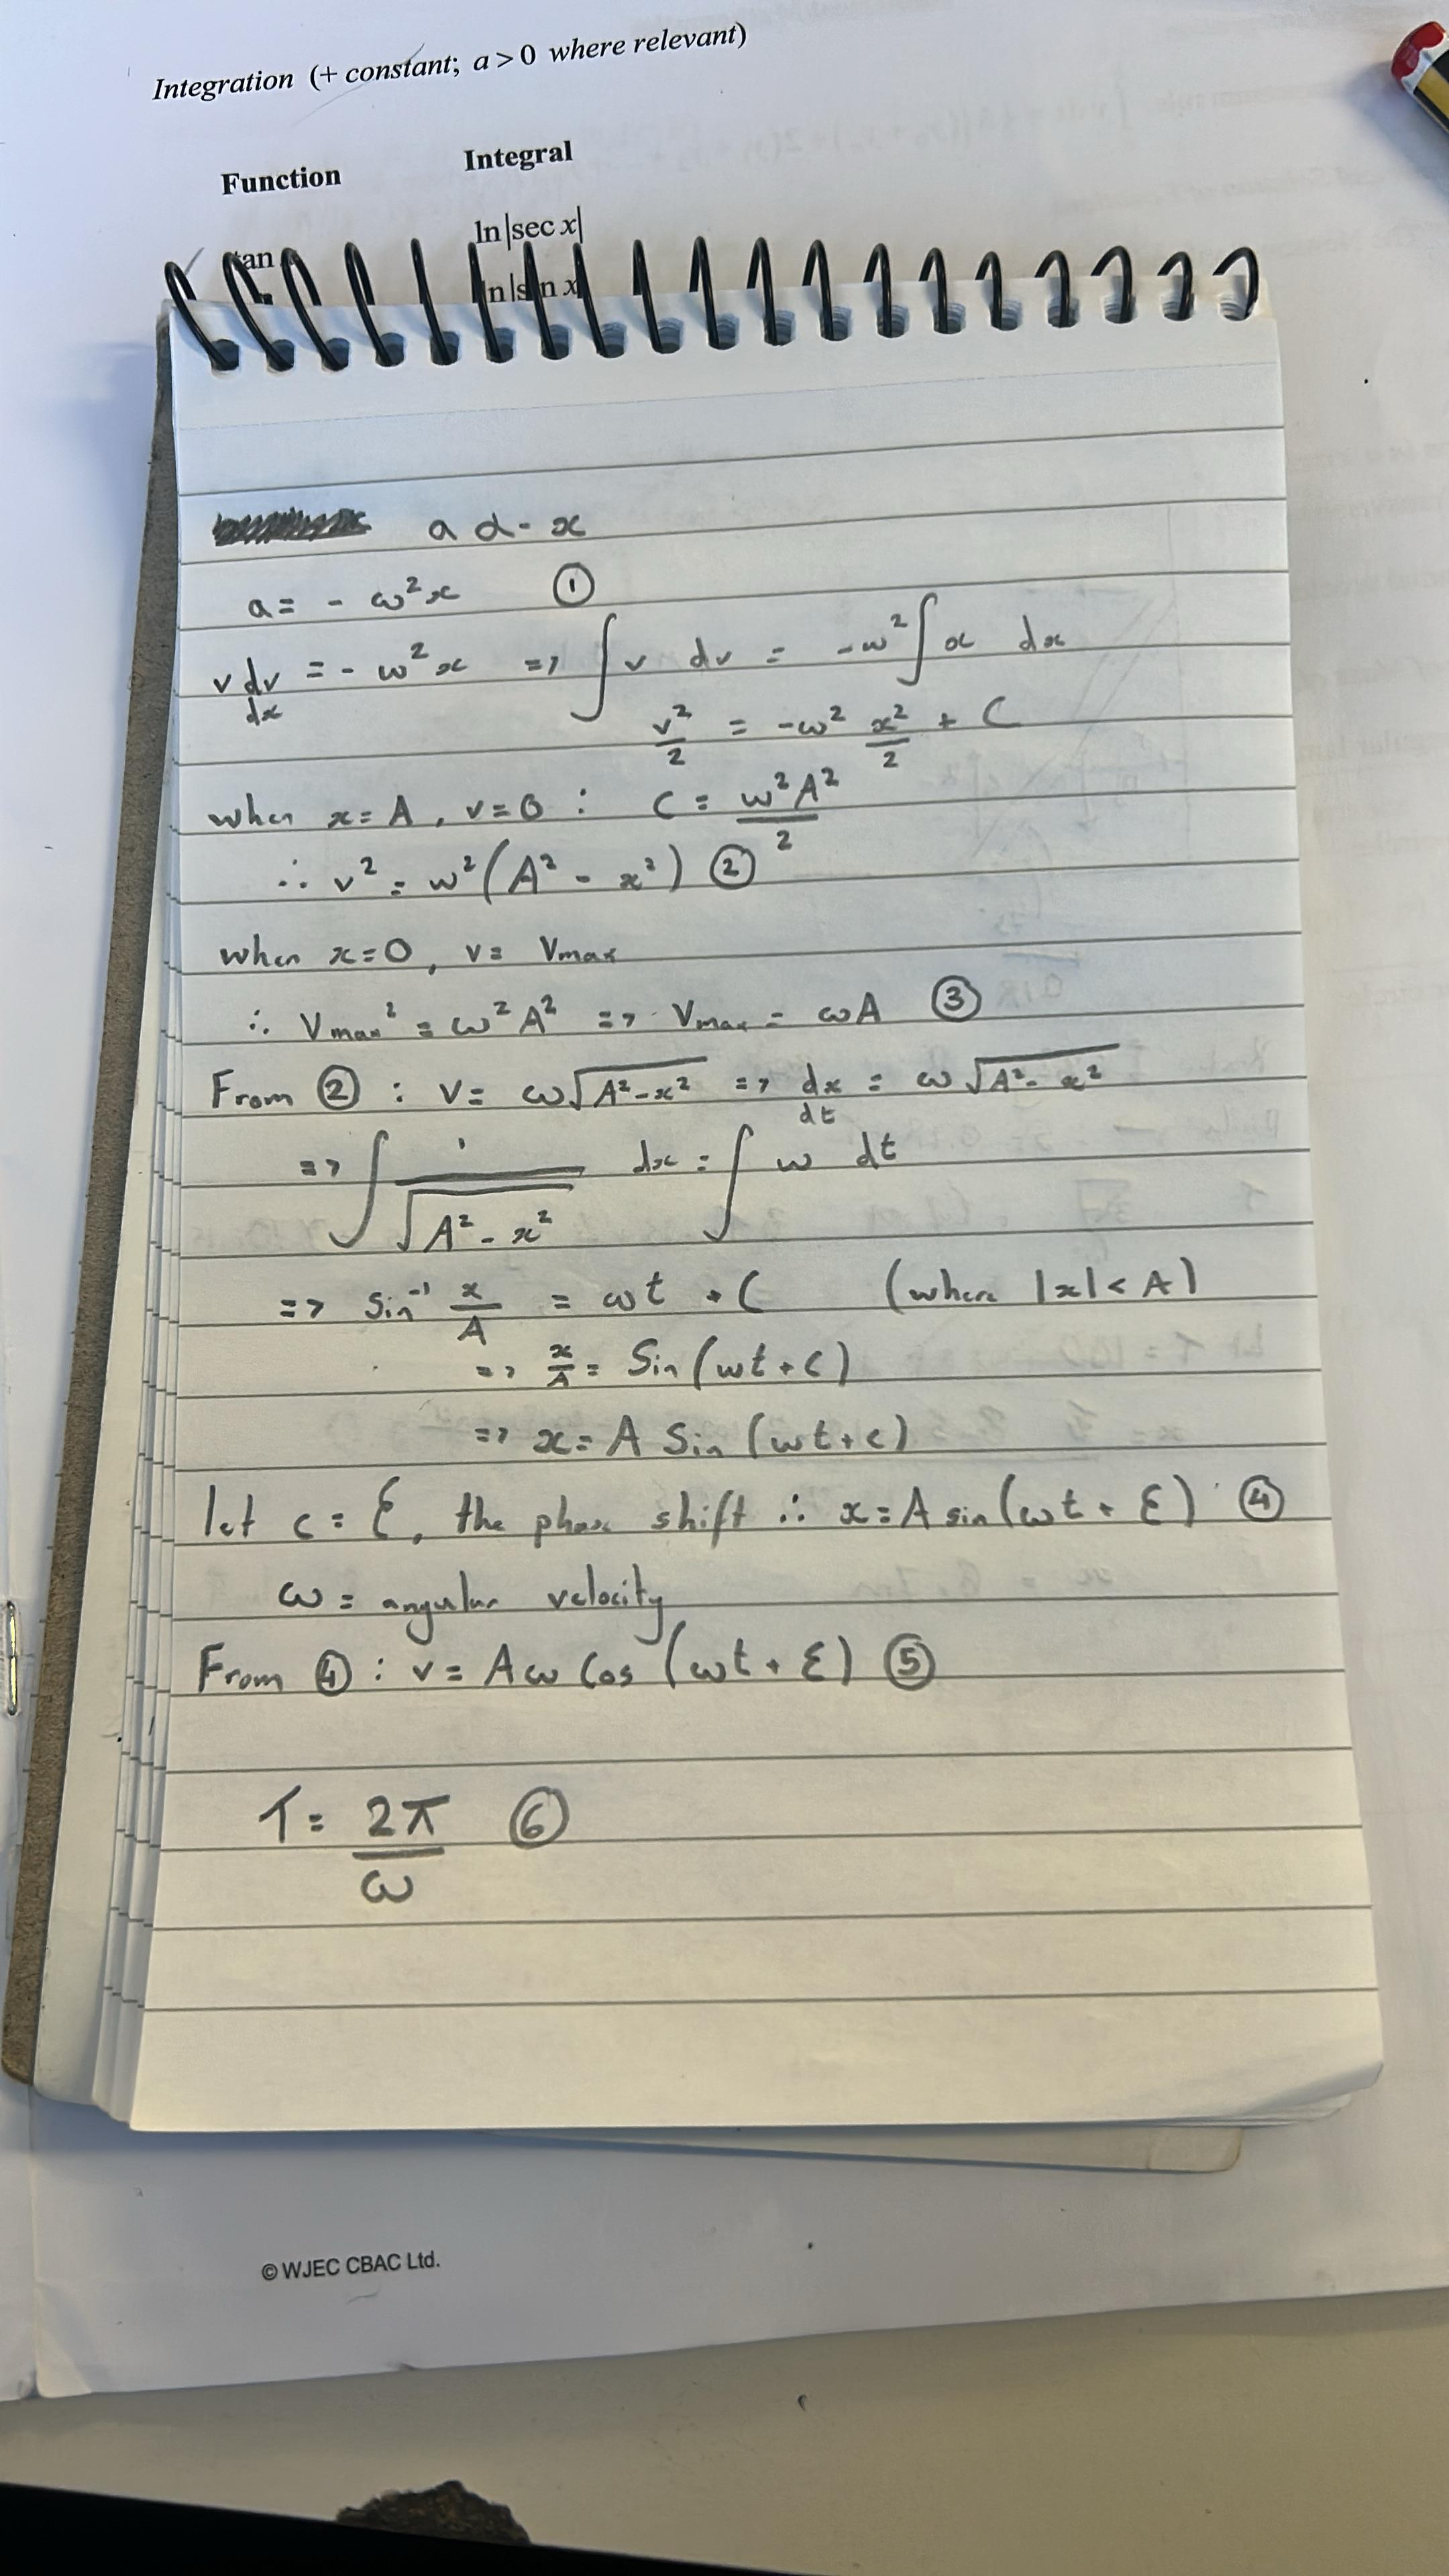 Integration (+ constant; a > 0 where relevant)
Function Integral
tan ln|sec x|
ln|sin x|
a α - x
a = - ω²x ①
v dv/dx = - ω²x => ∫ v dv = -ω² ∫ x dx
v²/2 = -ω² x²/2 + C
when x = A, v = 0 : C = ω²A²/2
∴ v² = ω²(A² - x²) ②
when x = 0, v = Vmax
∴ Vmax² = ω²A² => Vmax = ωA ③
From ② : v = ω√(A²-x²) => dx/dt = ω√(A²-x²)
=> ∫ 1/√(A²-x²) dx = ∫ ω dt
=> Sin⁻¹ x/A = ωt + C (where |x| < A)
=> x/A = Sin(ωt + C)
=> x = A Sin(ωt + c)
let c = ε, the phase shift ∴ x = A sin(ωt + ε) ④
ω = angular velocity
From ④ : v = Aω Cos(ωt + ε) ⑤
T = 2π/ω ⑥
© WJEC CBAC Ltd.